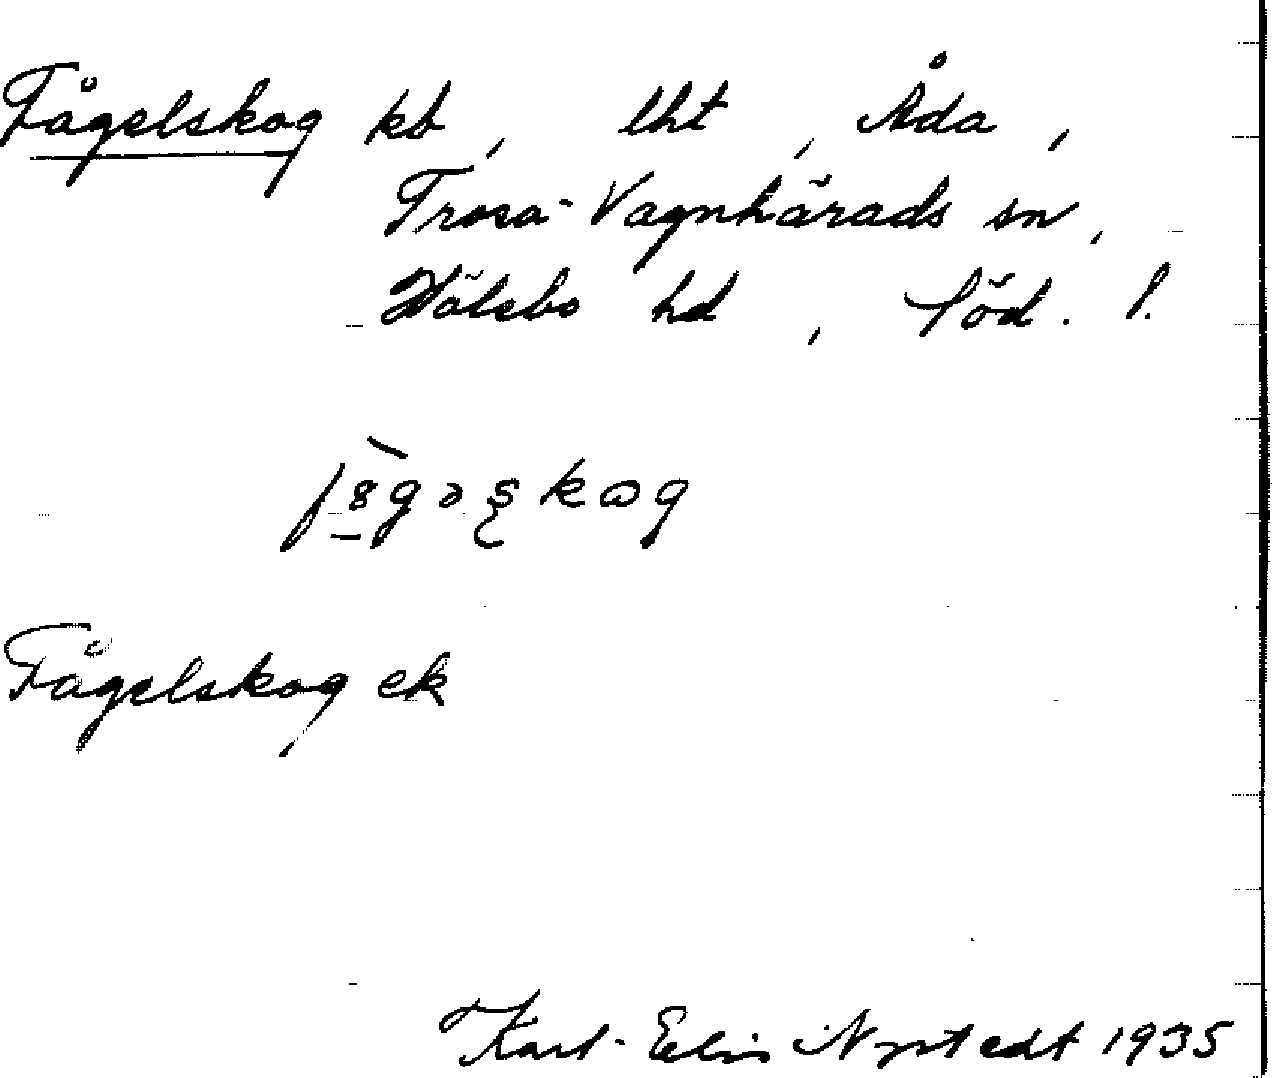 Fågelskog kb, lht, Åda,
Trosa-Vagnhärads sn,
Hölebo hd, Söd. l.
Fågelskog ek
Karl-Elis Nystedt 1935